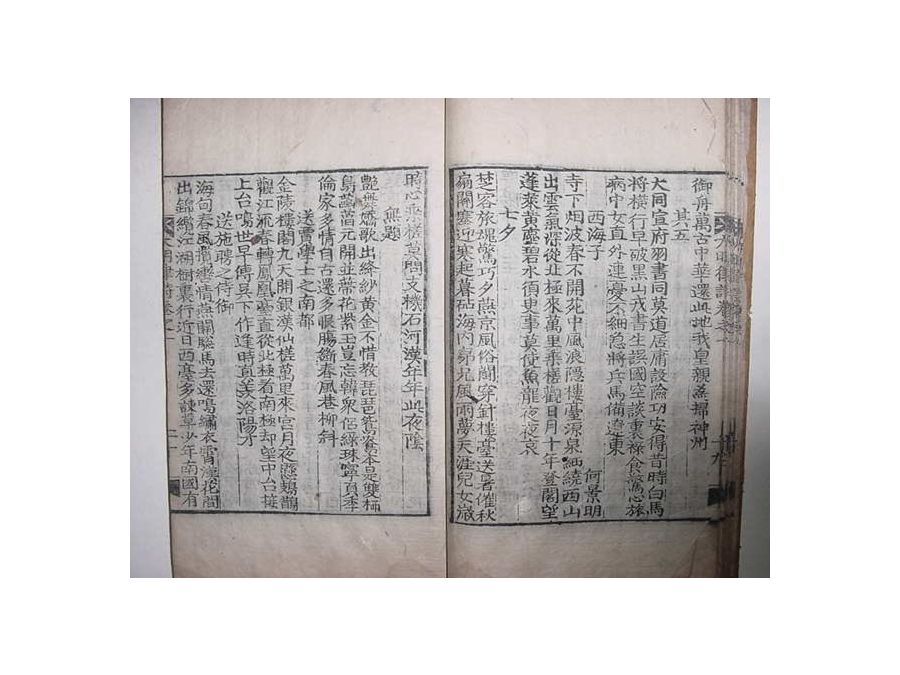 御舟萬古中華還此地我皇親爲掃神州
其五
大同宣府羽書同莫道居庸設險功安得昔時白馬
將橫行早破黑山戎書生誤國空談裏祿食驚心旅
病中女直外連憂不細急將兵馬備遼東
西海子
何景明
寺下烟波春不開苑中風浪隱樓臺源泉細繞西山
出雲氣深從北極來萬里乘槎觀日月十年登閣望
蓬萊黃塵碧水須史事莫使魚龍夜夜哀
七夕
楚客旅魂驚巧夕燕京風俗鬪穿針樓臺送暑催秋
扇關塞迎寒起暮砧海內弟兄風雨夢天涯兒女歲
時心乘槎莫問支機石河漢年年此夜陰
無題
艷舞嬌歌出絳紗黃金不惜教琵琶鴛鴦本是雙棲
鳥菡萏元開並蔕花紫玉豈忘韓衆侶綠珠寧負季
倫家多情自古還多恨腸斷春風巷柳斜
送賈學士之南都
金陵樓閣九天開銀漢仙槎萬里來宮月夜懸鳷鵲
觀江流春轉鳳凰臺直從北極看南極却望中台接
上台鳴世早傳吴下作逢時直羨洛陽才
送施聘之侍御
海甸春風攬繼情燕關驄馬去還鳴繡衣霄漢花間
出錦纜江湖樹裏行近日西臺多諫草少年南國有